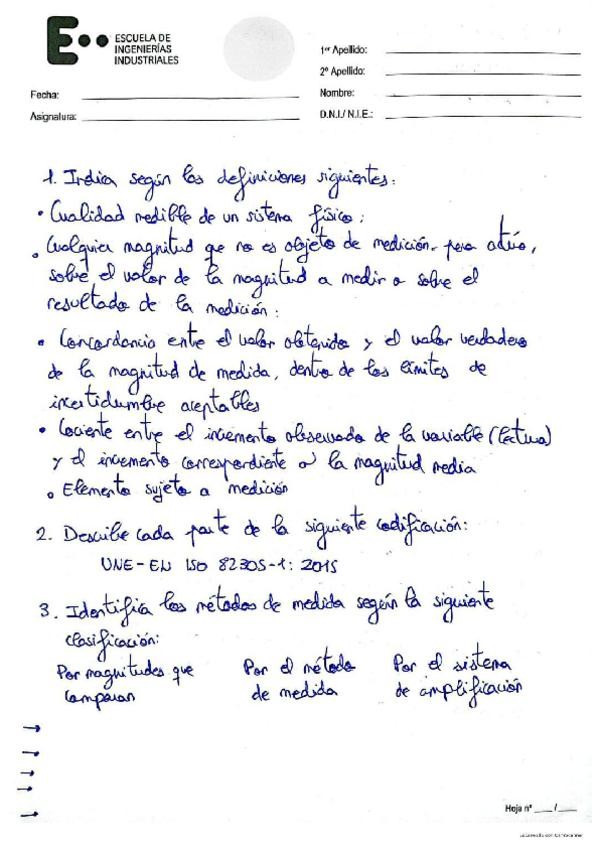 E
ESCUELA DE
INGENIERÍAS
INDUSTRIALES
1er Apellido:
2º Apellido:
Fecha:
Nombre:
Asignatura:
D.N.I./ N.I.E.:
1. Indica según las definiciones siguientes:
• Cualidad medible de un sistema físico:
• Cualquier magnitud que no es objeto de medición, pero actúa,
sobre el valor de la magnitud a medir o sobre el
resultado de la medición:
• Concordancia entre el valor obtenido y el valor verdadero
de la magnitud de medida, dentro de los límites de
incertidumbre aceptables
• Cociente entre el incremento observado de la variable (lectura)
y el incremento correspondiente a la magnitud media
• Elemento sujeto a medición
2. Describe cada parte de la siguiente codificación:
UNE-EN ISO 82305-1: 2015
3. Identifica los métodos de medida según la siguiente
clasificación:
Por magnitudes que comparan
Por el método de medida
Por el sistema de amplificación
Hoja nº ___/___